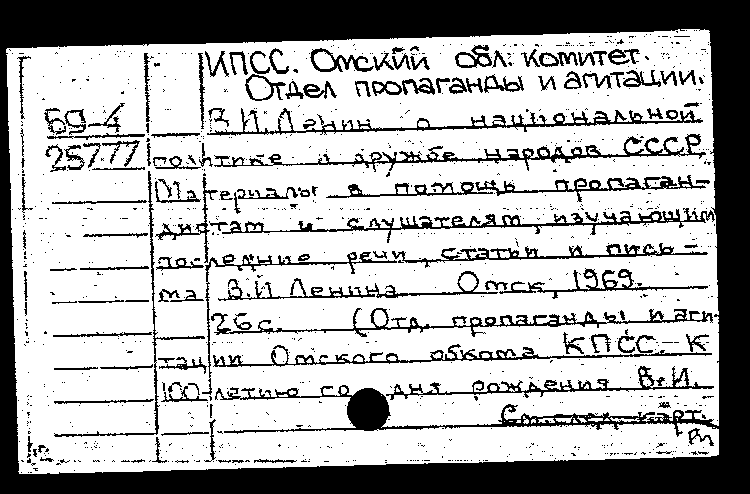 КПСС. Омский обл. комитет.
Отдел пропаганды и агитации.
69-4 В.И. Ленин о национальной
257.77 политике и дружбе народов СССР
Материалы в помощь пропаган-
дистам и слушателям, изучающим
последние речи, статьи и пись-
ма В.И Ленина Омск, 1969.
26 с. (Отд. пропаганды и аги-
тации Омского обкома КПСС. К
100-летию со дня рождения В.И.
См. след. карт.